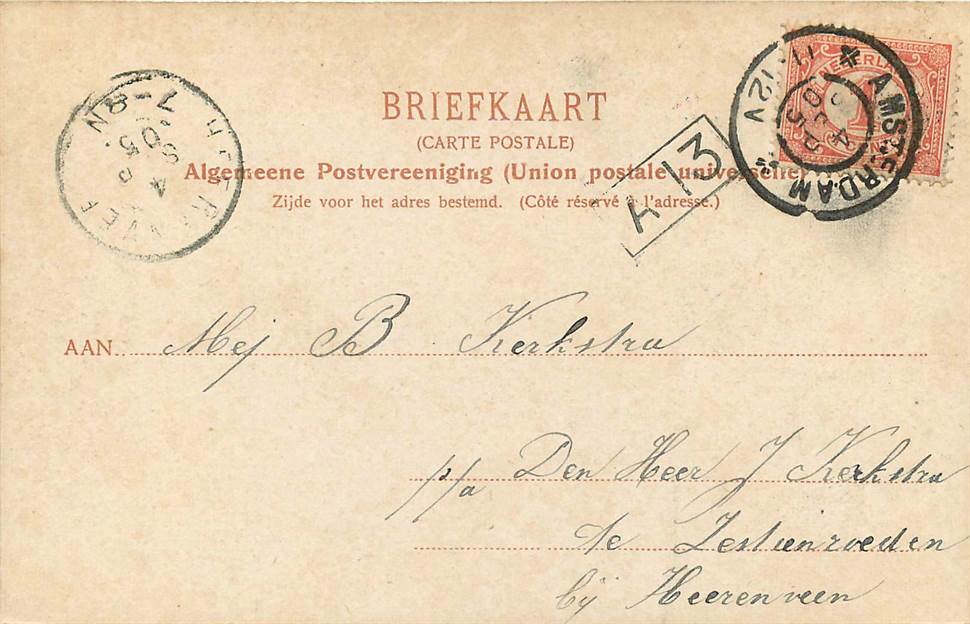 BRIEFKAART
(CARTE POSTALE)
Algemeene Postvereeniging (Union postale universelle)
Zijde voor het adres bestemd. (Côté réservé à l'adresse.)
A 13
AMSTERDAM
11-12V
7-8N
AAN Mej B Kerkstra
p/a Den Heer J Kerkstra
te Zestienroeden
bij Heerenveen